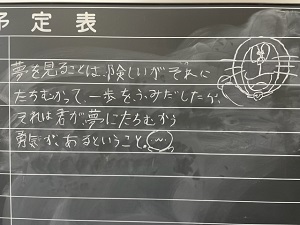 予定表
夢を見ることは、険しいが、それに
たちむかって、一歩をふみだしたら、
それは君が、夢にたちむかう
勇気が、あるということ。